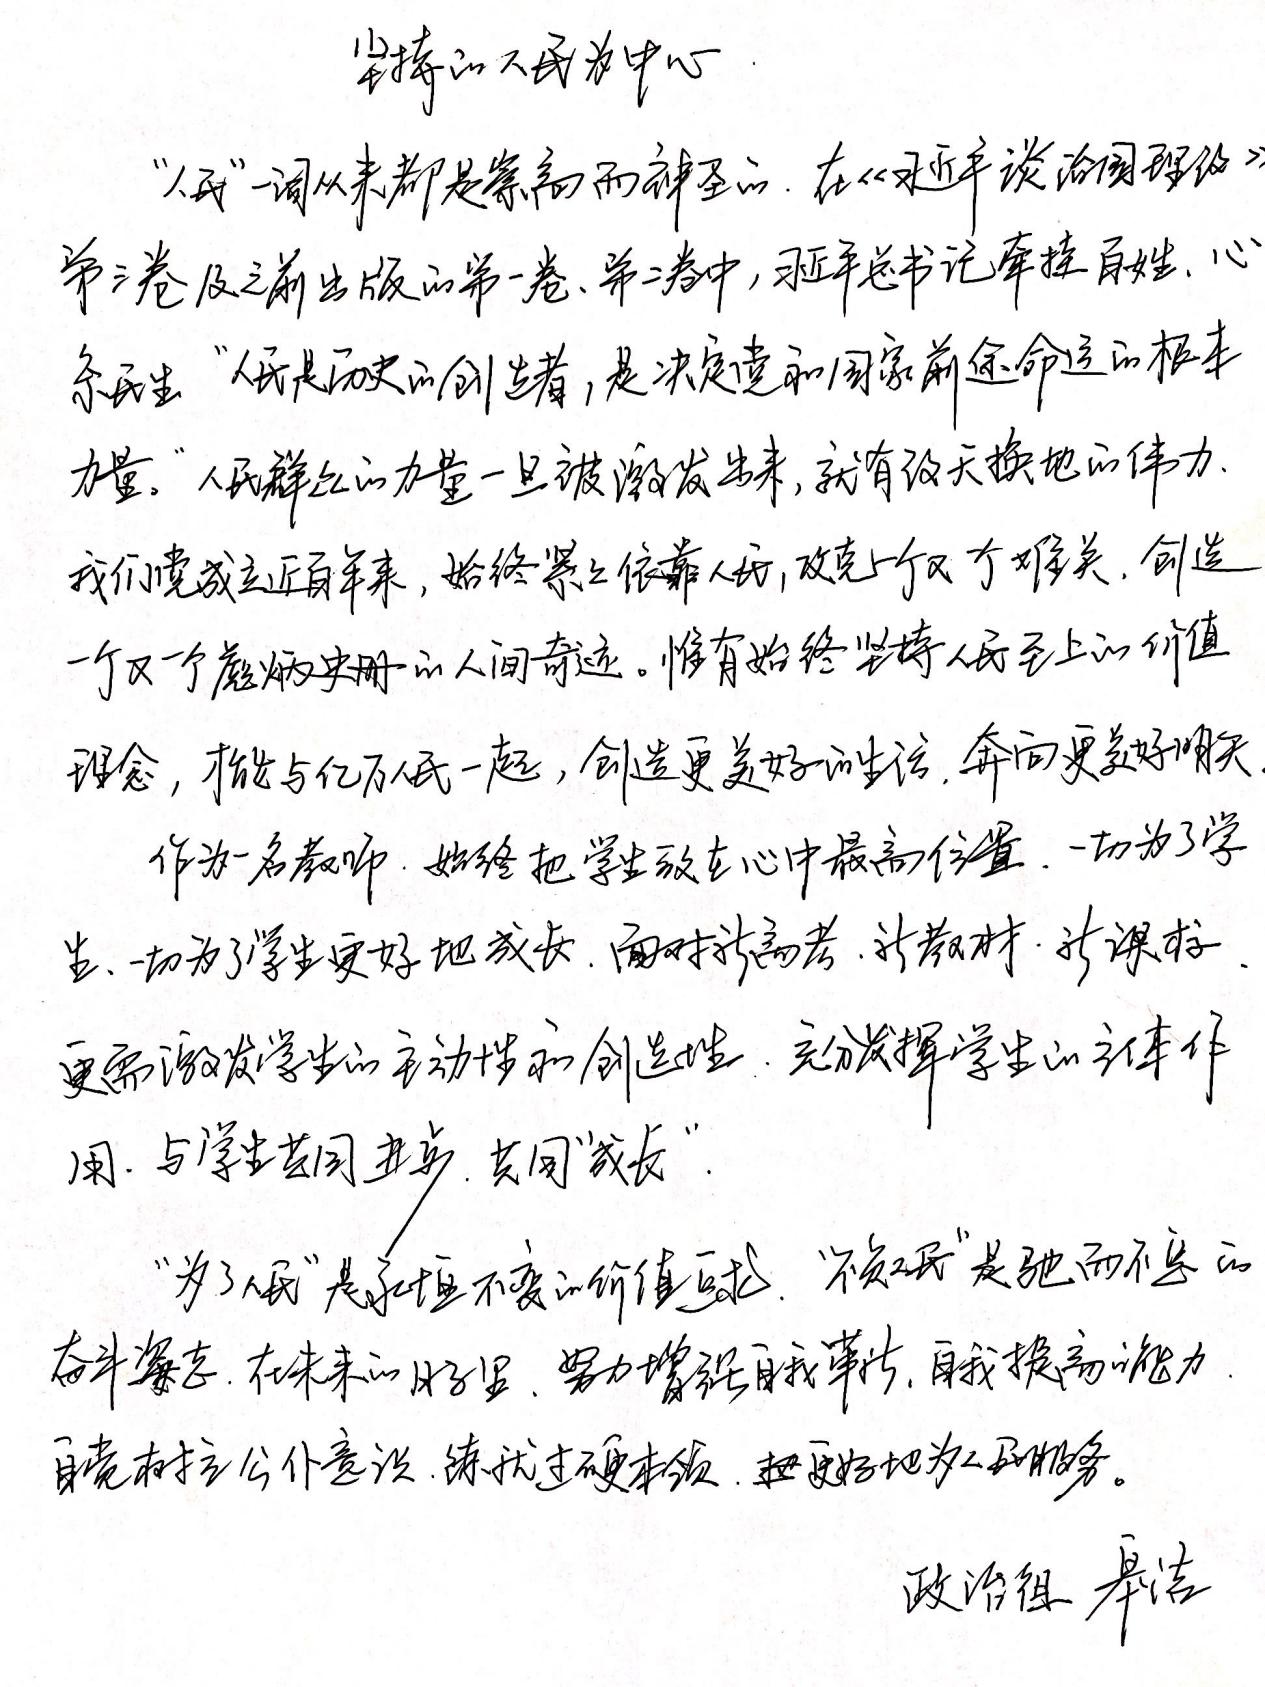 坚持以人民为中心
“人民”一词从来都是崇高而神圣的.在《习近平谈治国理政》
第三卷及之前出版的第一卷、第二卷中,习近平总书记牵挂百姓、心
系民生“人民是历史的创造者,是决定党和国家前途命运的根本
力量。”人民群众的力量一旦被激发出来,就有改天换地的伟力.
我们党成立近百年来,始终紧紧依靠人民,攻克一个又一个难关.创造
一个又一个彪炳史册的人间奇迹。惟有始终坚持人民至上的价值
理念,才能与亿万人民一起,创造更美好的生活.奔向更美好明天.
作为一名教师.始终把学生放在心中最高位置.一切为了学
生、一切为了学生更好地成长.面对新高考.新教材.新课程.
更需激发学生的主动性和创造性.充分发挥学生的主体作
用.与学生共同进步.共同“成长”.
“为了人民”是永恒不变的价值追求.“不负人民”是驰而不息的
奋斗姿态.在未来的日子里.努力增强自我革新,自我提高的能力.
自觉树立公仆意识.练就过硬本领.更好地为人民服务。
政治组 洁